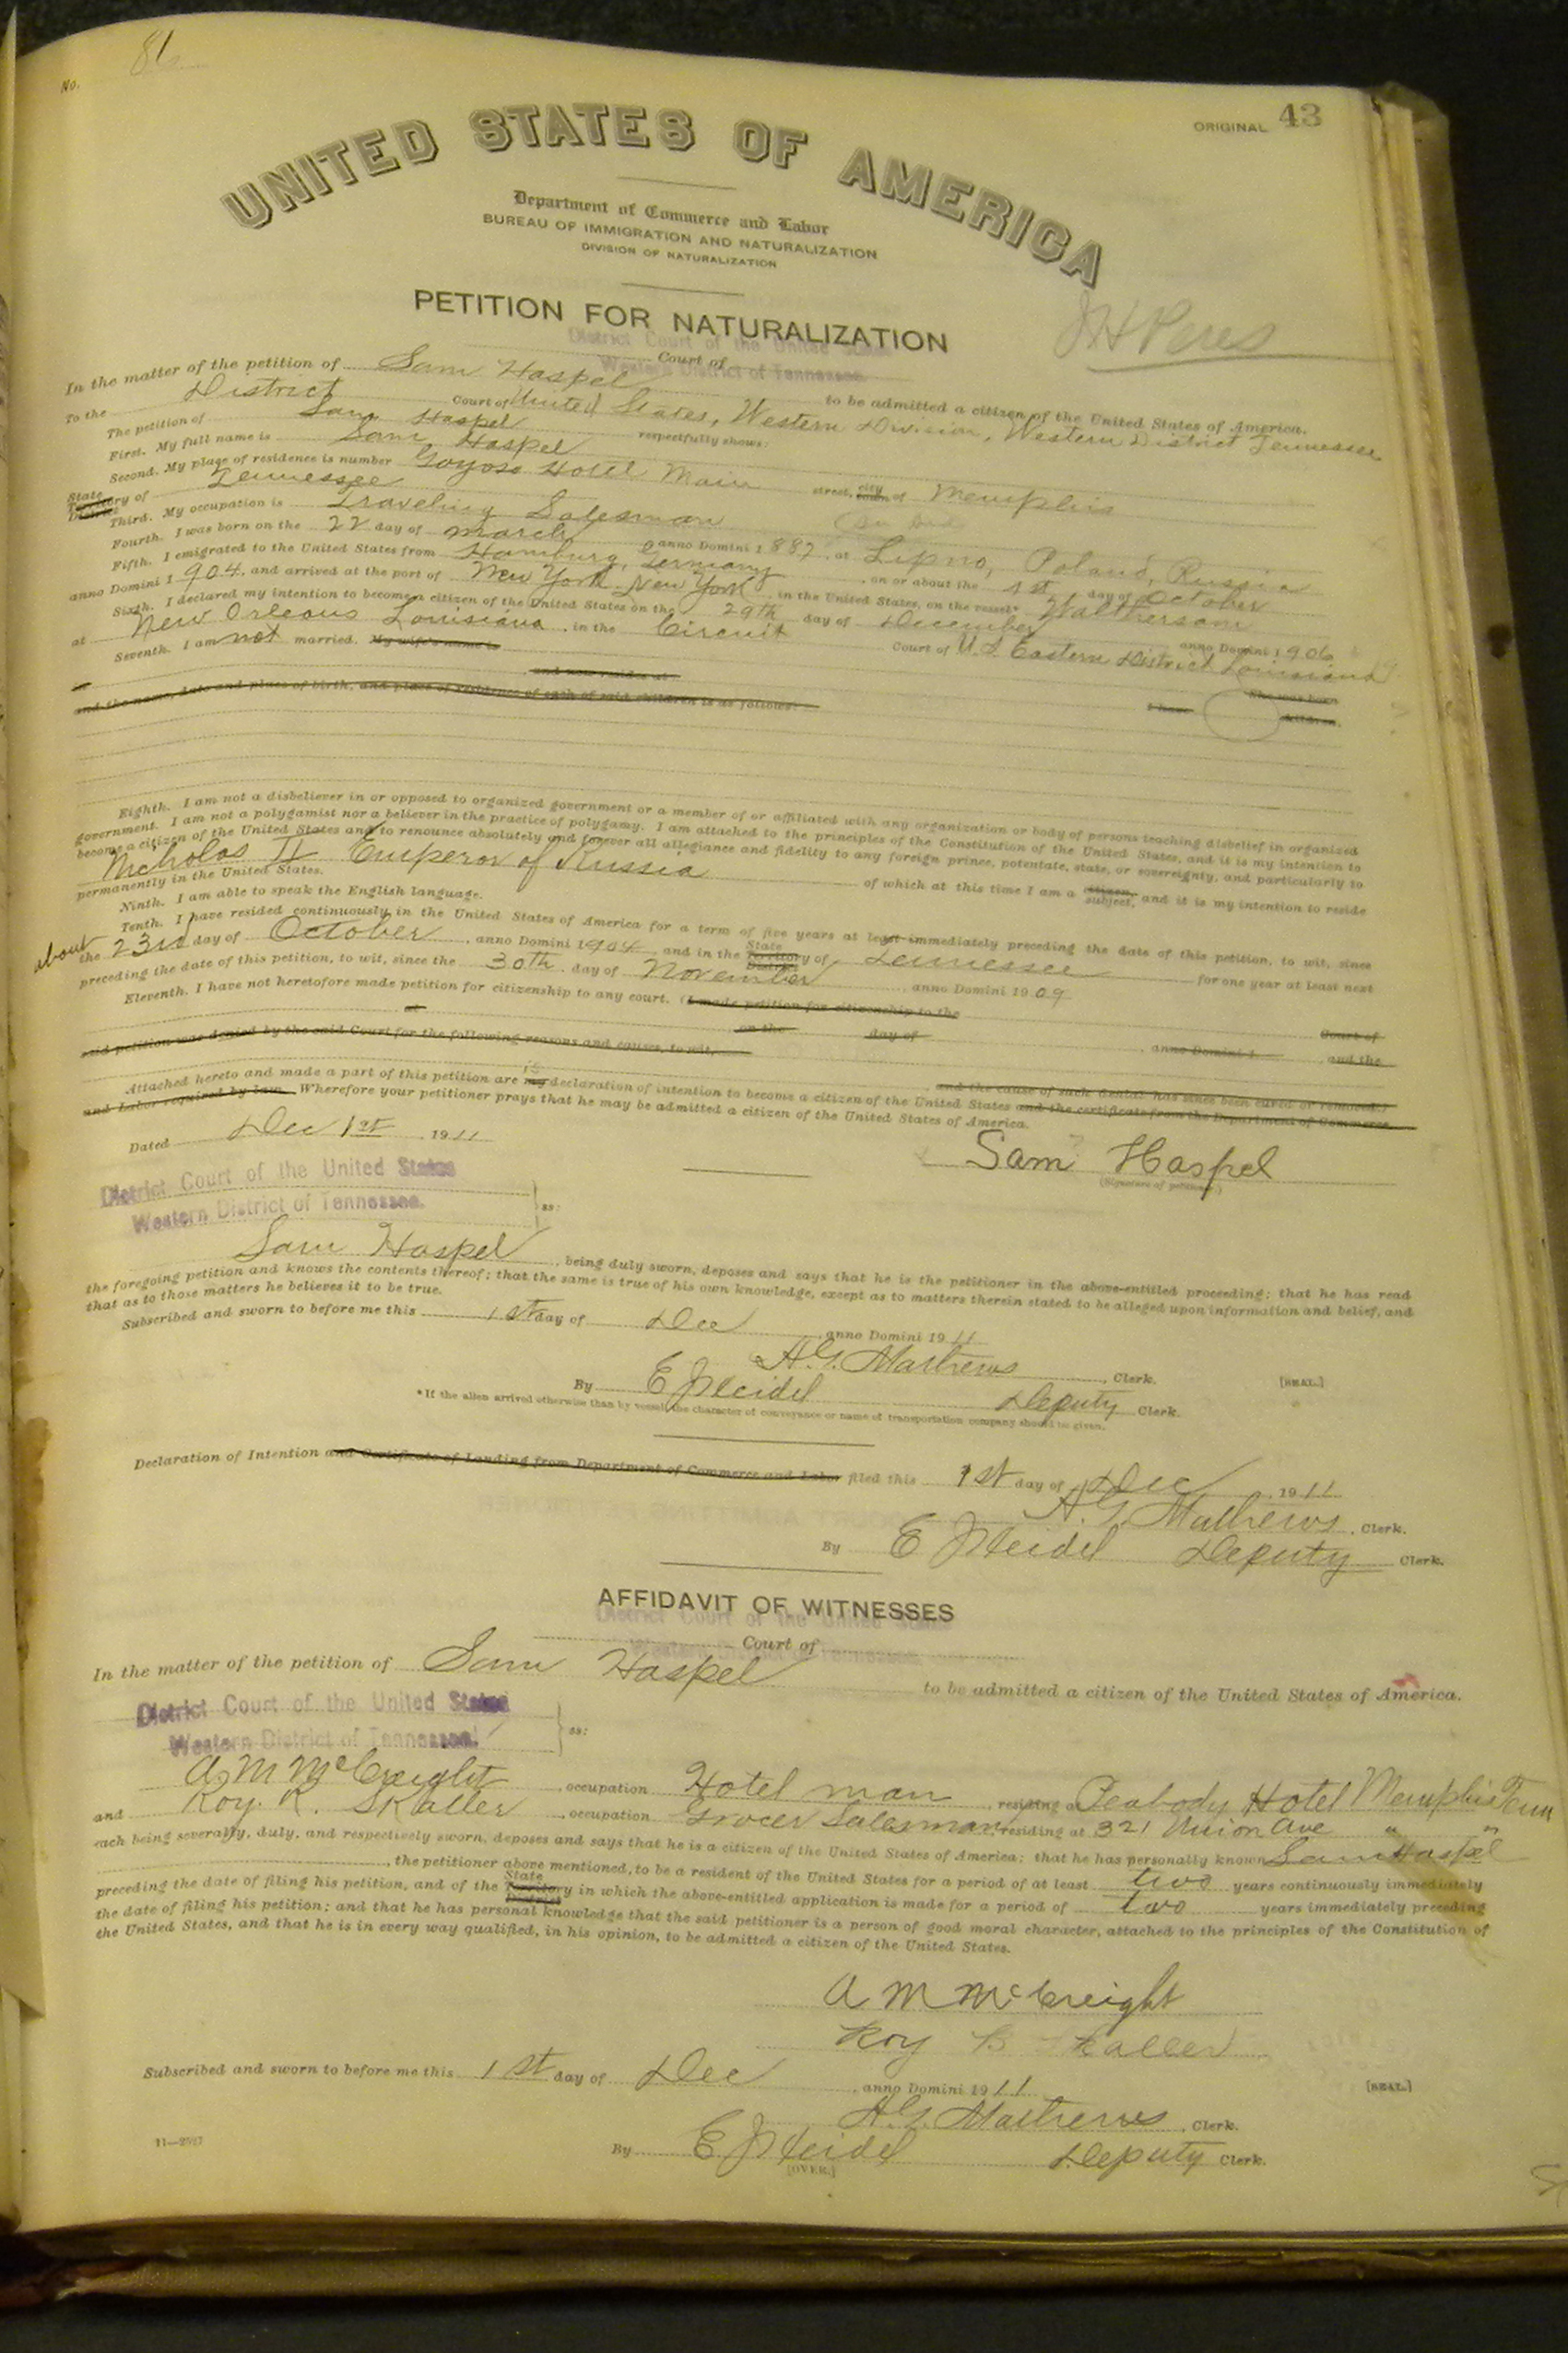 No. 81
ORIGINAL 43
UNITED STATES OF AMERICA
Department of Commerce and Labor
BUREAU OF IMMIGRATION AND NATURALIZATION
DIVISION OF NATURALIZATION
PETITION FOR NATURALIZATION
District Court of the United States
Court of
Western District of Tennessee
In the matter of the petition of Sam Haspel to be admitted a citizen of the United States of America.
To the District Court of United States, Western Division, Western District Tennessee
The petition of Sam Haspel respectfully shows:
First. My full name is Sam Haspel
Second. My place of residence is number Gayoso Hotel Main street, city town of Memphis
State Territory District of Tennessee
Third. My occupation is Traveling Salesman
Fourth. I was born on the 22 day of March anno Domini 1882, at Lipno, Poland, Russia
Fifth. I emigrated to the United States from Hamburg, Germany, on or about the 1st day of October
anno Domini 1904, and arrived at the port of New York New York, in the United States, on the vessel*
Sixth. I declared my intention to become a citizen of the United States on the 29th day of December anno Domini 1906
at New Orleans Louisiana, in the Circuit Court of U.S. Eastern District Louisiana
Seventh. I am not married. My wife's name is She was born
and now resides at I have children,
and the name, date and place of birth, and place of residence of each of said children is as follows:
Eighth. I am not a disbeliever in or opposed to organized government or a member of or affiliated with any organization or body of persons teaching disbelief in organized
government. I am not a polygamist nor a believer in the practice of polygamy. I am attached to the principles of the Constitution of the United States, and it is my intention to
become a citizen of the United States and to renounce absolutely and forever all allegiance and fidelity to any foreign prince, potentate, state, or sovereignty, and particularly to
Nicholas II Emperor of Russia of which at this time I am a citizen, subject, and it is my intention to reside
permanently in the United States.
Ninth. I am able to speak the English language.
Tenth. I have resided continuously in the United States of America for a term of five years at least immediately preceding the date of this petition, to wit, since
about the 23rd day of October, anno Domini 1904 and in the State Territory District of Tennessee for one year at least next
preceding the date of this petition, to wit, since the 30th day of November, anno Domini 1909
Eleventh. I have not heretofore made petition for citizenship to any court. (I made petition for citizenship to the Court of
at on the day of, anno Domini 1 and the
said petition was denied by the said Court for the following reasons and causes, to wit,
and the cause of such denial has since been cured or removed.)
Attached hereto and made a part of this petition are is my declaration of intention to become a citizen of the United States and the certificate from the Department of Commerce
and Labor required by law. Wherefore your petitioner prays that he may be admitted a citizen of the United States of America.
Dated Dec 1st 1911
Sam Haspel
(Signature of petitioner)
District Court of the United States
Western District of Tennessee. ss:
Sam Haspel, being duly sworn, deposes and says that he is the petitioner in the above-entitled proceeding; that he has read
the foregoing petition and knows the contents thereof; that the same is true of his own knowledge, except as to matters therein stated to be alleged upon information and belief, and
that as to those matters he believes it to be true.
Subscribed and sworn to before me this 1st day of Dec, anno Domini 1911
A.G. Mathews, Clerk. [SEAL.]
By E J Heidel Deputy Clerk.
*If the alien arrived otherwise than by vessel, the character of conveyance or name of transportation company should be given.
Declaration of Intention and Certificate of Landing from Department of Commerce and Labor filed this 1st day of Dec, 1911
A.G. Mathews, Clerk.
By E J Heidel Deputy Clerk.
AFFIDAVIT OF WITNESSES
District Court of the United States
Court of
In the matter of the petition of Sam Haspel to be admitted a citizen of the United States of America.
District Court of the United States
Western District of Tennessee. ss:
A M McCreight, occupation Hotel man, residing at Peabody Hotel Memphis Tenn
and Roy. K. Skaller, occupation Grocer Salesman, residing at 321 Union Ave " "
each being severally, duly, and respectively sworn, deposes and says that he is a citizen of the United States of America; that he has personally known Sam Haspel
, the petitioner above mentioned, to be a resident of the United States for a period of at least two years continuously immediately
preceding the date of filing his petition, and of the State Territory District in which the above-entitled application is made for a period of two years immediately preceding
the date of filing his petition; and that he has personal knowledge that the said petitioner is a person of good moral character, attached to the principles of the Constitution of
the United States, and that he is in every way qualified, in his opinion, to be admitted a citizen of the United States.
A M McCreight
Roy Skaller
Subscribed and sworn to before me this 1st day of Dec, anno Domini 1911 [SEAL.]
A.G. Mathews, Clerk.
11—2527
By E J Heidel Deputy Clerk.
[OVER.]